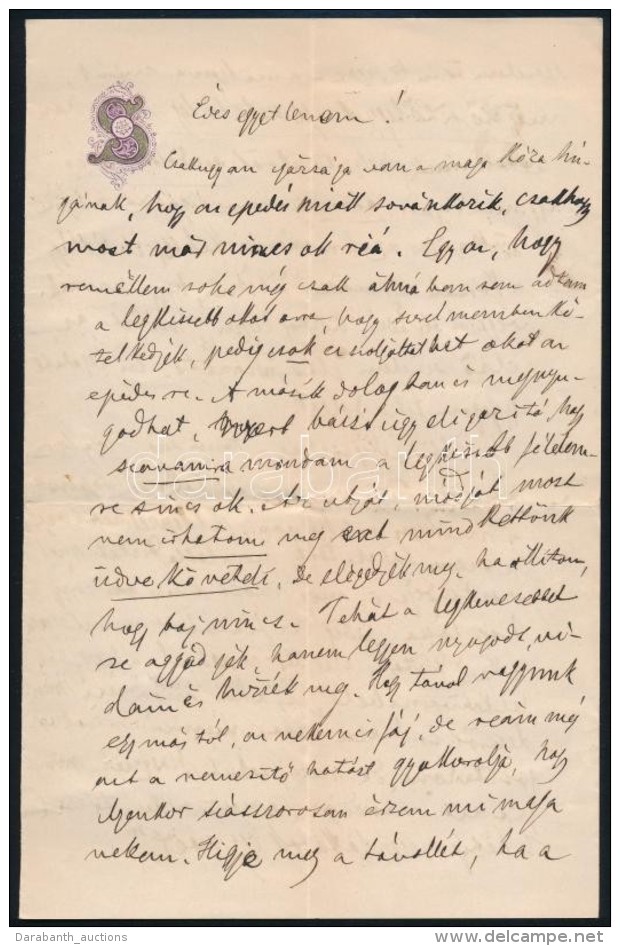 Édes egyetlenem!
Csakugyan igazsága van a maga Róza hú-
gának, hogy az epedés miatt soványkozik, csakhogy
most már nincs ok reá. Egy az, hogy
reméllem soha még csak álmában sem adtam
a legkissebb okot arra, hogy szerelmemben ké-
telkedjék, pedig csak ez szolgáltathat okot az
epedésre. A másik dologban is megnyu-
godhat, mert bácsi úgy eligazitá, hogy
szavamra mondom a legkissebb félelem-
re sincs ok. Az utját, módját most
nem irhatom meg ezt mindkettőnk
üdve követeli, de elégedjék meg, ha állitom,
hogy baj nincs. Tehát a legkevesebbet
se aggódjék, hanem legyen nyugodt, vi-
dám és hízzék meg. Hogy távol vagyunk
egymástól, az nekem is fáj, de reám még
azt a nemesítő hatást gyakorolja, hogy
ilyenkor százszorosan érzem mi maga
nekem. Higje meg a távollét, ha a
Darabanth
Darabanth_auctions
www.delcampe.net